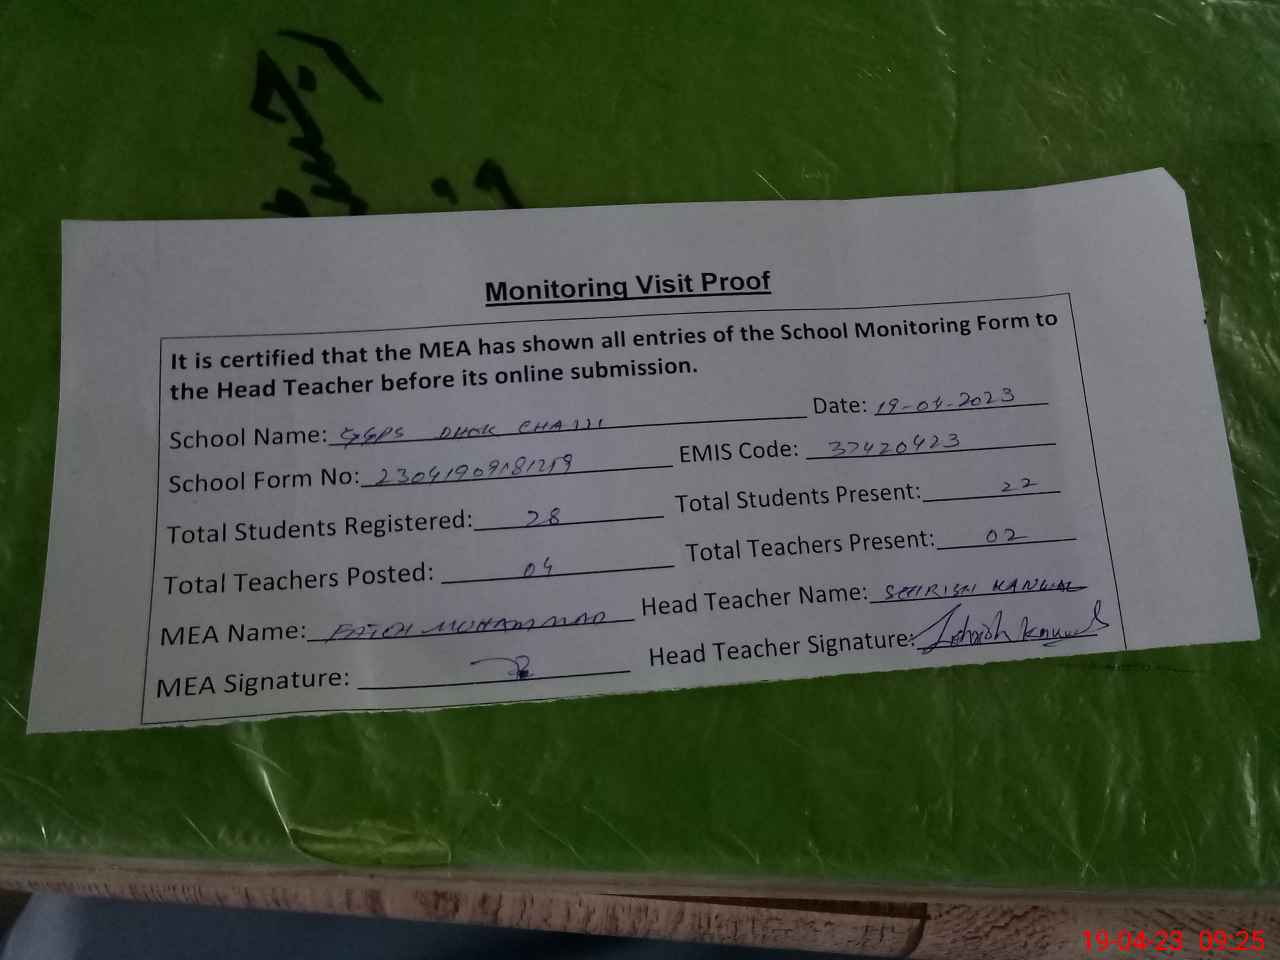 Monitoring Visit Proof
It is certified that the MEA has shown all entries of the School Monitoring Form to
the Head Teacher before its online submission.
School Name: GGPS DHOK CHAJJI Date: 19-04-2023
School Form No: EMIS Code: 37420423
Total Students Registered: 28 Total Students Present: 22
Total Teachers Posted: 04 Total Teachers Present: 02
MEA Name: FATEH MUHAMMAD Head Teacher Name: SEHRISH KANWAL
MEA Signature: Head Teacher Signature: Sehrish Kanwal
19-04-23 09:25